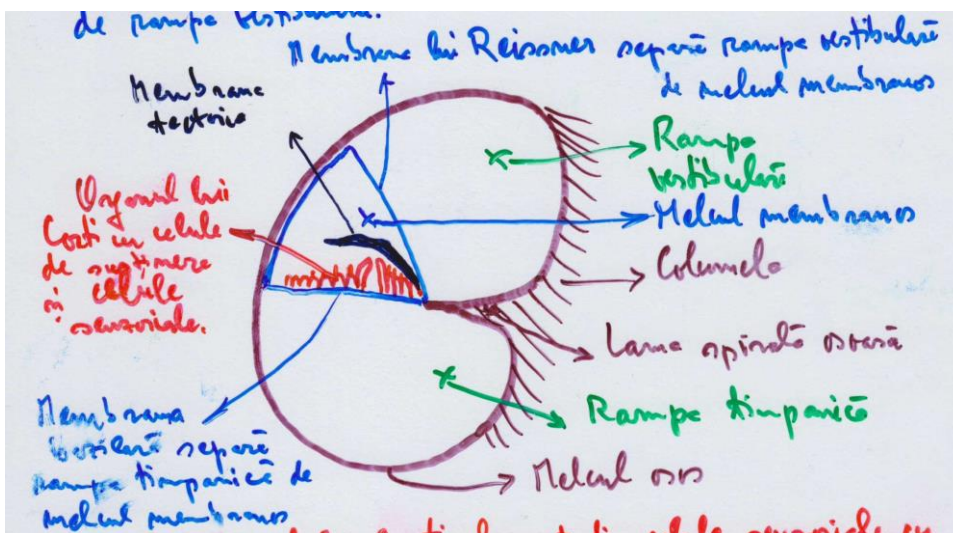 de rampa vestibulară.
Membrana lui Reissner separă rampa vestibulară
de melcul membranos
Membrana
tectoria
Rampa
vestibulară
Organul lui
Corti cu celule
de susținere
și celule
senzoriale.
Melcul membranos
Columela
Lama spirală osoasă
Rampa timpanică
Membrana
bazilară separă
rampa timpanică de
melcul membranos
Melcul osos